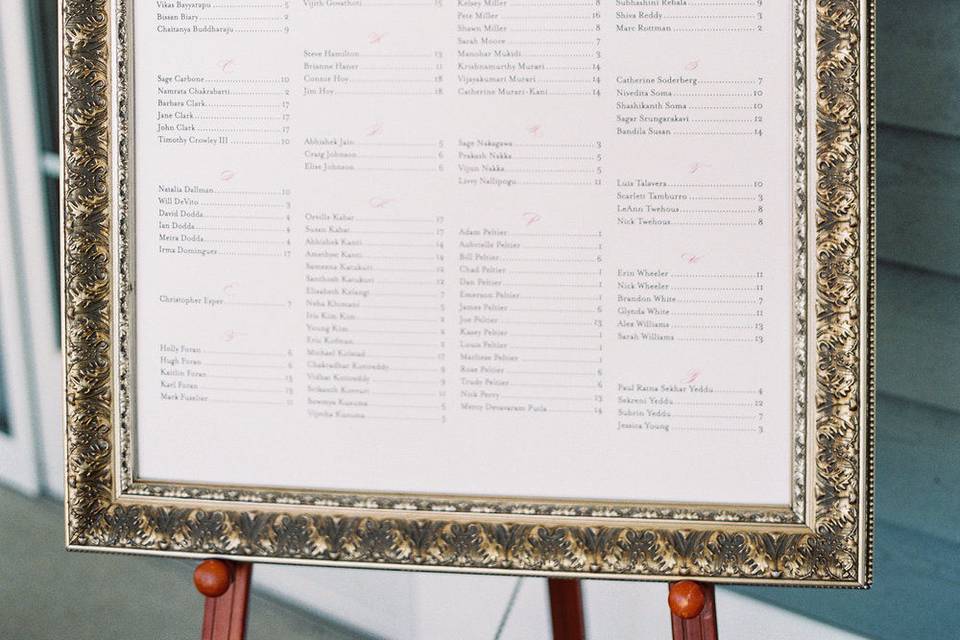 Vikas Bayyarapu 5
Bissan Biary 2
Chaitanya Buddharaju 9
C
Sage Carbone 10
Namrata Chakrabarti 2
Barbara Clark 17
Jane Clark 17
John Clark 17
Timothy Crowley III 10
D
Natalia Dallman 10
Will DeVito 3
David Dodda 4
Ian Dodda 4
Meira Dodda 4
Irma Dominguez 17
E
Christopher Esper 7
F
Holly Foran 6
Hugh Foran 6
Kaitlin Foran 13
Karl Foran 13
Mark Fuselier 11
Vijith Govathoti 15
H
Steve Hamilton 13
Brianne Haner 11
Connie Hoy 18
Jim Hoy 18
J
Abhishek Jain 5
Craig Johnson 6
Elise Johnson 6
K
Orville Kabat 17
Susan Kabat 17
Abhishek Kanti 14
Amethyst Kanti 14
Sameena Katukuri 12
Santhosh Katukuri 12
Elisabeth Kelangi 7
Neha Khimani 5
Iris Kim Kim 2
Young Kim 2
Eric Kofman 2
Michael Kolstad 17
Chakradhar Kotareddy 9
Vidhat Kotireddy 9
Srikanth Kovvuri
Sowmya Kusuma 5
Vijesha Kusuma 5
Kelsey Miller 8
Pete Miller 16
Shawn Miller 8
Sarah Moore 7
Manohar Mukidi 3
Krishnamurthy Murari 14
Vijayakumari Murari 14
Catherine Murari-Kani 14
N
Sage Nakagawa 3
Prakash Nakka 5
Vijun Nakka 5
Livey Nallipogu 11
P
Adam Peltier 1
Aubrielle Peltier 1
Bill Peltier 6
Chad Peltier 1
Dan Peltier 1
Emerson Peltier 1
James Peltier 6
Joe Peltier 13
Kasey Peltier 1
Louis Peltier 1
Marliese Peltier 1
Rose Peltier 6
Trudy Peltier 6
Nick Perry 13
Mercy Devavaram Putla 14
Subhashini Rebala 9
Shiva Reddy 3
Marc Rottman 2
S
Catherine Soderberg 7
Nivedita Soma 10
Shashikanth Soma 10
Sagar Srungarakavi 12
Bandila Susan 14
T
Luis Talavera 10
Scarlett Tamburro 3
LeAnn Twehous 8
Nick Twehous 8
W
Erin Wheeler 11
Nick Wheeler 11
Brandon White 7
Glynda White 11
Alez Williams 13
Sarah Williams 13
Y
Paul Ratna Sekhar Yeddu 4
Sekreni Yeddu 12
Subrin Yeddu 7
Jessica Young 3